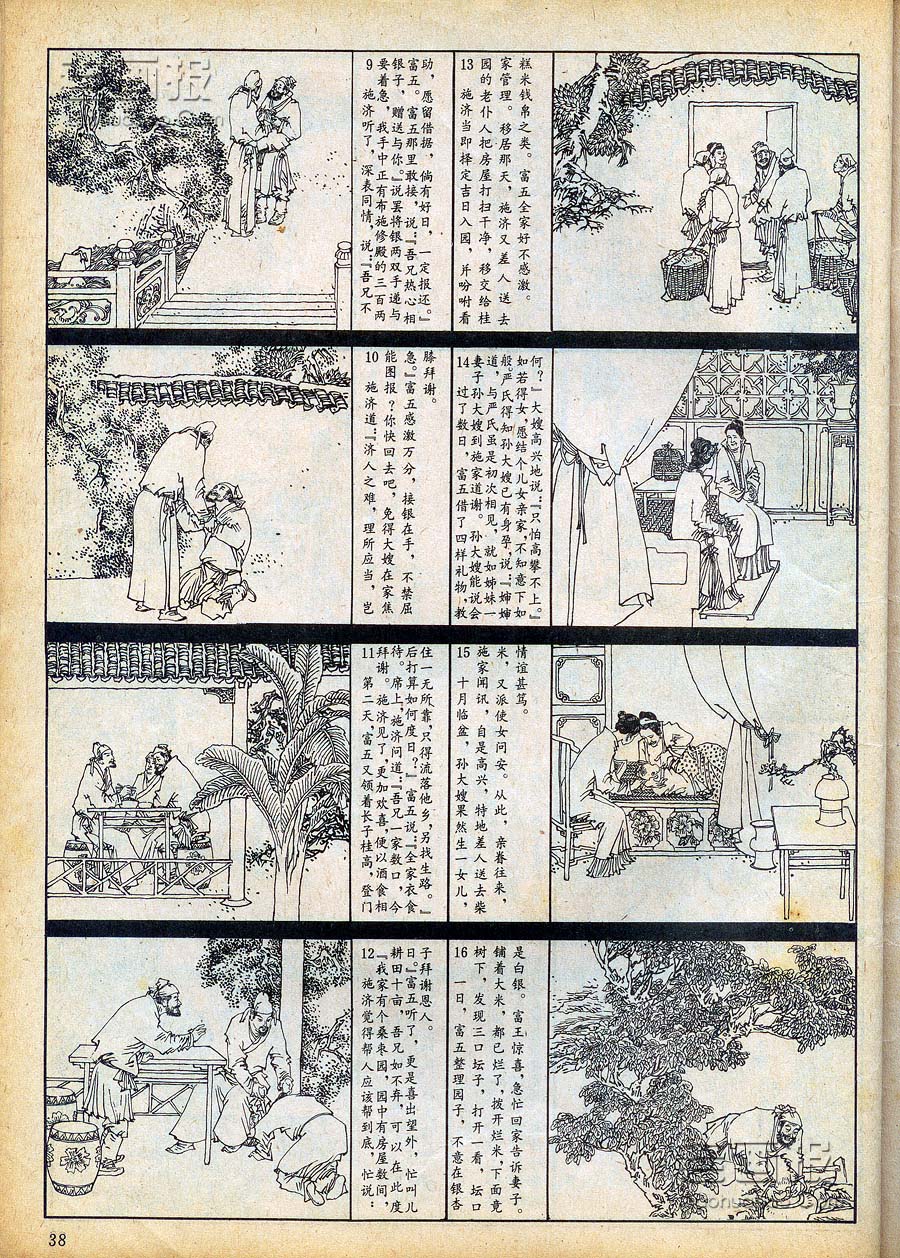 9 施济听了，深表同情，说：『吾兄不
要着急，我手中正有布施修殿的三百两
银子，赠送与你。』说罢将银两双手递与
富五。富五那里敢接，说：『吾兄热心相
助，愿留借据，倘有好日，一定报还。』
10 施济道：『济人之难，理所应当，岂
能图报？你快回去吧，免得大嫂在家焦
急。』富五感激万分，接银在手，不禁屈
膝拜谢。
11 第二天，富五又领着长子桂高，登门
拜谢。施济见了，更加欢喜，便以酒食相
待。席上，施济问道：『吾兄一家数口，今
后打算如何度日？』富五说：『全家衣食
住一无所靠，只得流落他乡，另找生路。』
12 施济觉得帮人应该帮到底，忙说：
『我家有个桑枣园，园中有房屋数间，
耕田十亩，吾兄如不弃，可以在此度
日。』富五听了，更是喜出望外，忙叫儿
子拜谢恩人。
13 施济当即择定吉日入园，并吩咐看
园的老仆人把房屋打扫干净，移交给桂
家管理。移居那天，施济又差人送去
糕米钱帛之类。富五全家好不感激。
14 过了数日，富五借了四样礼物，教
妻子孙大嫂到施家道谢。孙大嫂能说会
道，与严氏虽是初次相见，就如姊妹一
般。严氏得知孙大嫂已有身孕，说：『婶婶
如若得女，愿结个儿女亲家，不知意下如
何？』大嫂高兴地说：『只怕高攀不上。』
15 十月临盆，孙大嫂果然生一女儿，
施家闻讯，自是高兴，特地差人送去柴
米，又派使女问安。从此，亲眷往来，
情谊甚笃。
16 一日，富五整理园子，不意在银杏
树下，发现三口坛子，打开一看，坛口
铺着大米，都已烂了，拨开烂米，下面竟
是白银。富王惊喜，急忙回家告诉妻子。
38